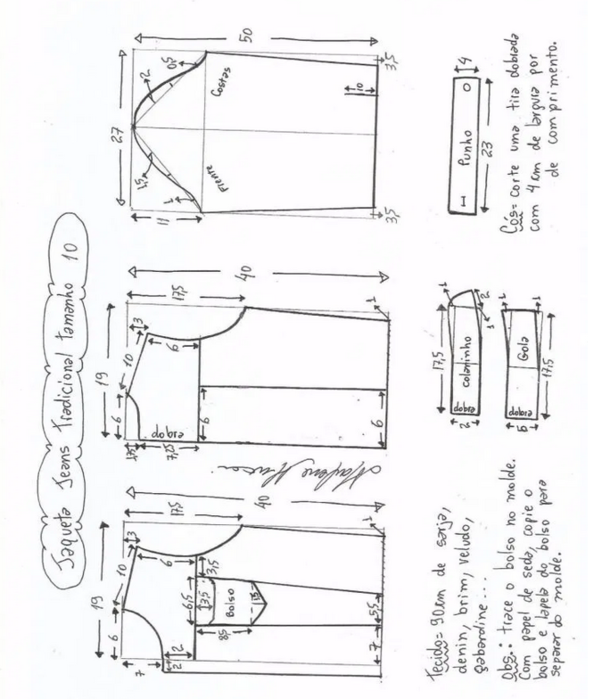 Jaqueta Jeans Tradicional tamanho 10
19
6
10
3
17,5
40
6
7
2
2
3,5
6,5
3,5
Bolso
8,5
1,5
5,5
7
1
19
6
10
3
17,5
40
1,5
7,25
dobra
9
6
6
1
27
50
11
1,5
1
2
0,5
Frente
Costas
10
3,5
3,5
Tecido= 90cm de sarja,
denin, brim, veludo,
gabardine...
Obs.: trace o bolso no molde.
Com papel de seda, copie o
bolso e lapela do bolso para
separar do molde.
17,5
2
dobra
colarinho
1
2
1
dobra
Gola
5
1
1
17,5
Punho
4
23
Cós= corte uma tira dobrada
com 4cm de largura por
de comprimento.